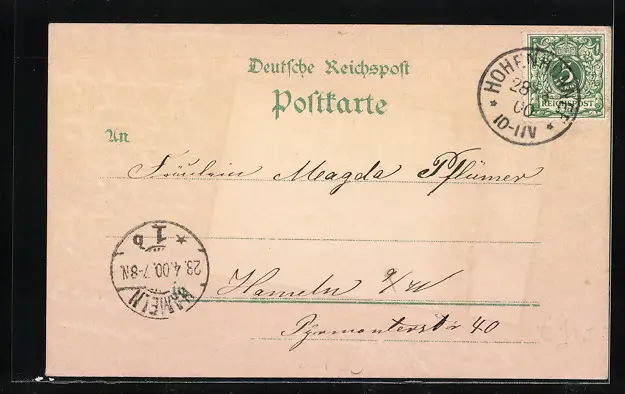 Deutsche Reichspost
Postkarte
REICHSPOST
28
00
10-11V
An
Fräulein Magda Pflümer
1 b
28.4.00.7-8N.
HAMELN
Hameln a/W
Pyrmonterstr 40